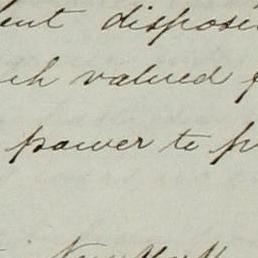 ent disposi
ch valued f
power to p